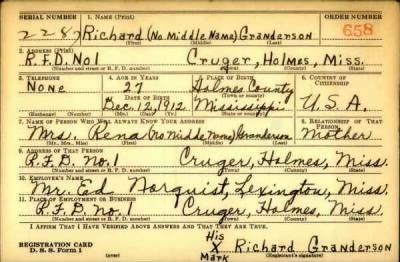 SERIAL NUMBER 1. NAME (Print) ORDER NUMBER
2287 Richard (No Middle Name) Granderson 658
(First) (Middle) (Last)
2. ADDRESS (Print)
R.F.D. No 1 Cruger, Holmes, Miss.
(Number and street or R. F. D. number) (Town) (County) (State)
3. TELEPHONE 4. AGE IN YEARS 5. PLACE OF BIRTH 6. COUNTRY OF CITIZENSHIP
None 27 Holmes County
DATE OF BIRTH (Town or county)
Dec. 12, 1912 Mississippi U.S.A.
(Exchange) (Number) (Mo.) (Day) (Yr.) (State or country)
7. NAME OF PERSON WHO WILL ALWAYS KNOW YOUR ADDRESS 8. RELATIONSHIP OF THAT PERSON
Mrs. Rena (No Middle Name) Granderson Mother
(Mr., Mrs., Miss) (First) (Middle) (Last)
9. ADDRESS OF THAT PERSON
R.F.D. No. 1 Cruger, Holmes, Miss.
(Number and street or R. F. D. number) (Town) (County) (State)
10. EMPLOYER'S NAME
Mr. Ed Norquist, Lexington, Miss.
11. PLACE OF EMPLOYMENT OR BUSINESS
R.F.D. No. 1 Cruger, Holmes, Miss.
(Number and street or R. F. D. number) (Town) (County) (State)
I AFFIRM THAT I HAVE VERIFIED ABOVE ANSWERS AND THAT THEY ARE TRUE.
His
REGISTRATION CARD X Richard Granderson
D. S. S. Form 1 (over) Mark (Registrant's signature)